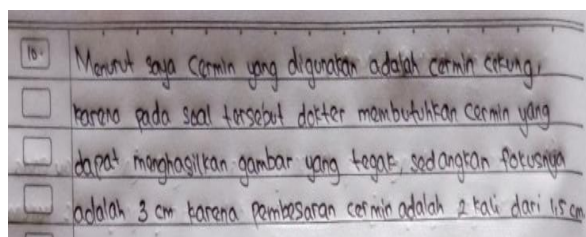 10. Menurut saya Cermin yang digunakan adalah cermin cekung,
karena pada soal tersebut dokter membutuhkan cermin yang
dapat menghasilkan gambar yang tegak, sedangkan fokusnya
adalah 3 cm karena pembesaran cermin adalah 2 kali dari 1,5 cm